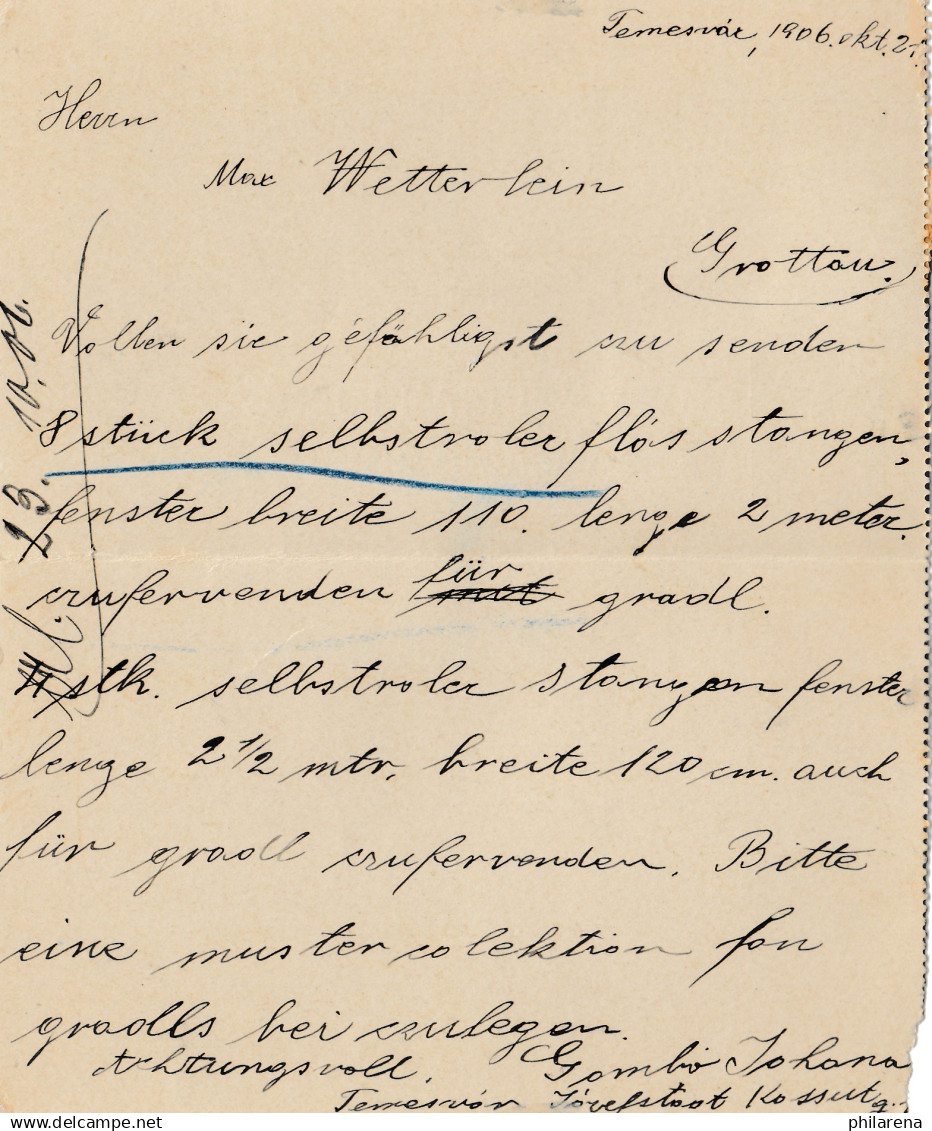 Temesvár, 1906. okt. 2
Herrn
Max Wetterlein
Grottau.
Vollen sie gefähligst czu senden
8 stück selbstroler flós stangen,
fenster breite 110. lenge 2 meter.
czufervenden für gradl.
4 stk. selbstroler stangen fenster
lenge 2 1/2 mtr. breite 120 cm. auch
für gradl czufervenden. Bitte
eine muster colektion fon
gradls bei czulegen.
Achtungsvoll. Gombó Johana
Temesvár Józefstadt Kossut g.
23. 10. 06.
philarena.com